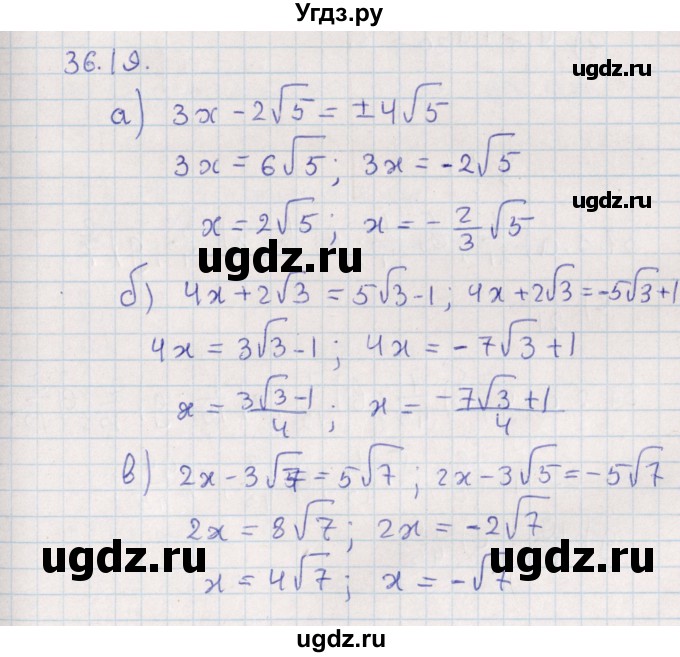 Угдз.ру
36.19.
ugdz.ru
а) 3x - 2√5 = ±4√5
3x = 6√5; 3x = -2√5
ugdz.ru
x = 2√5; x = - 2/3 √5
ugdz.ru
б) 4x + 2√3 = 5√3 - 1; 4x + 2√3 = -5√3 + 1
4x = 3√3 - 1; 4x = -7√3 + 1
x = (3√3 - 1)/4; x = (-7√3 + 1)/4
ugdz.ru
в) 2x - 3√7 = 5√7; 2x - 3√5 = -5√7
2x = 8√7; 2x = -2√7
ugdz.ru ugdz.ru
x = 4√7; x = -√7
ugdz.ru